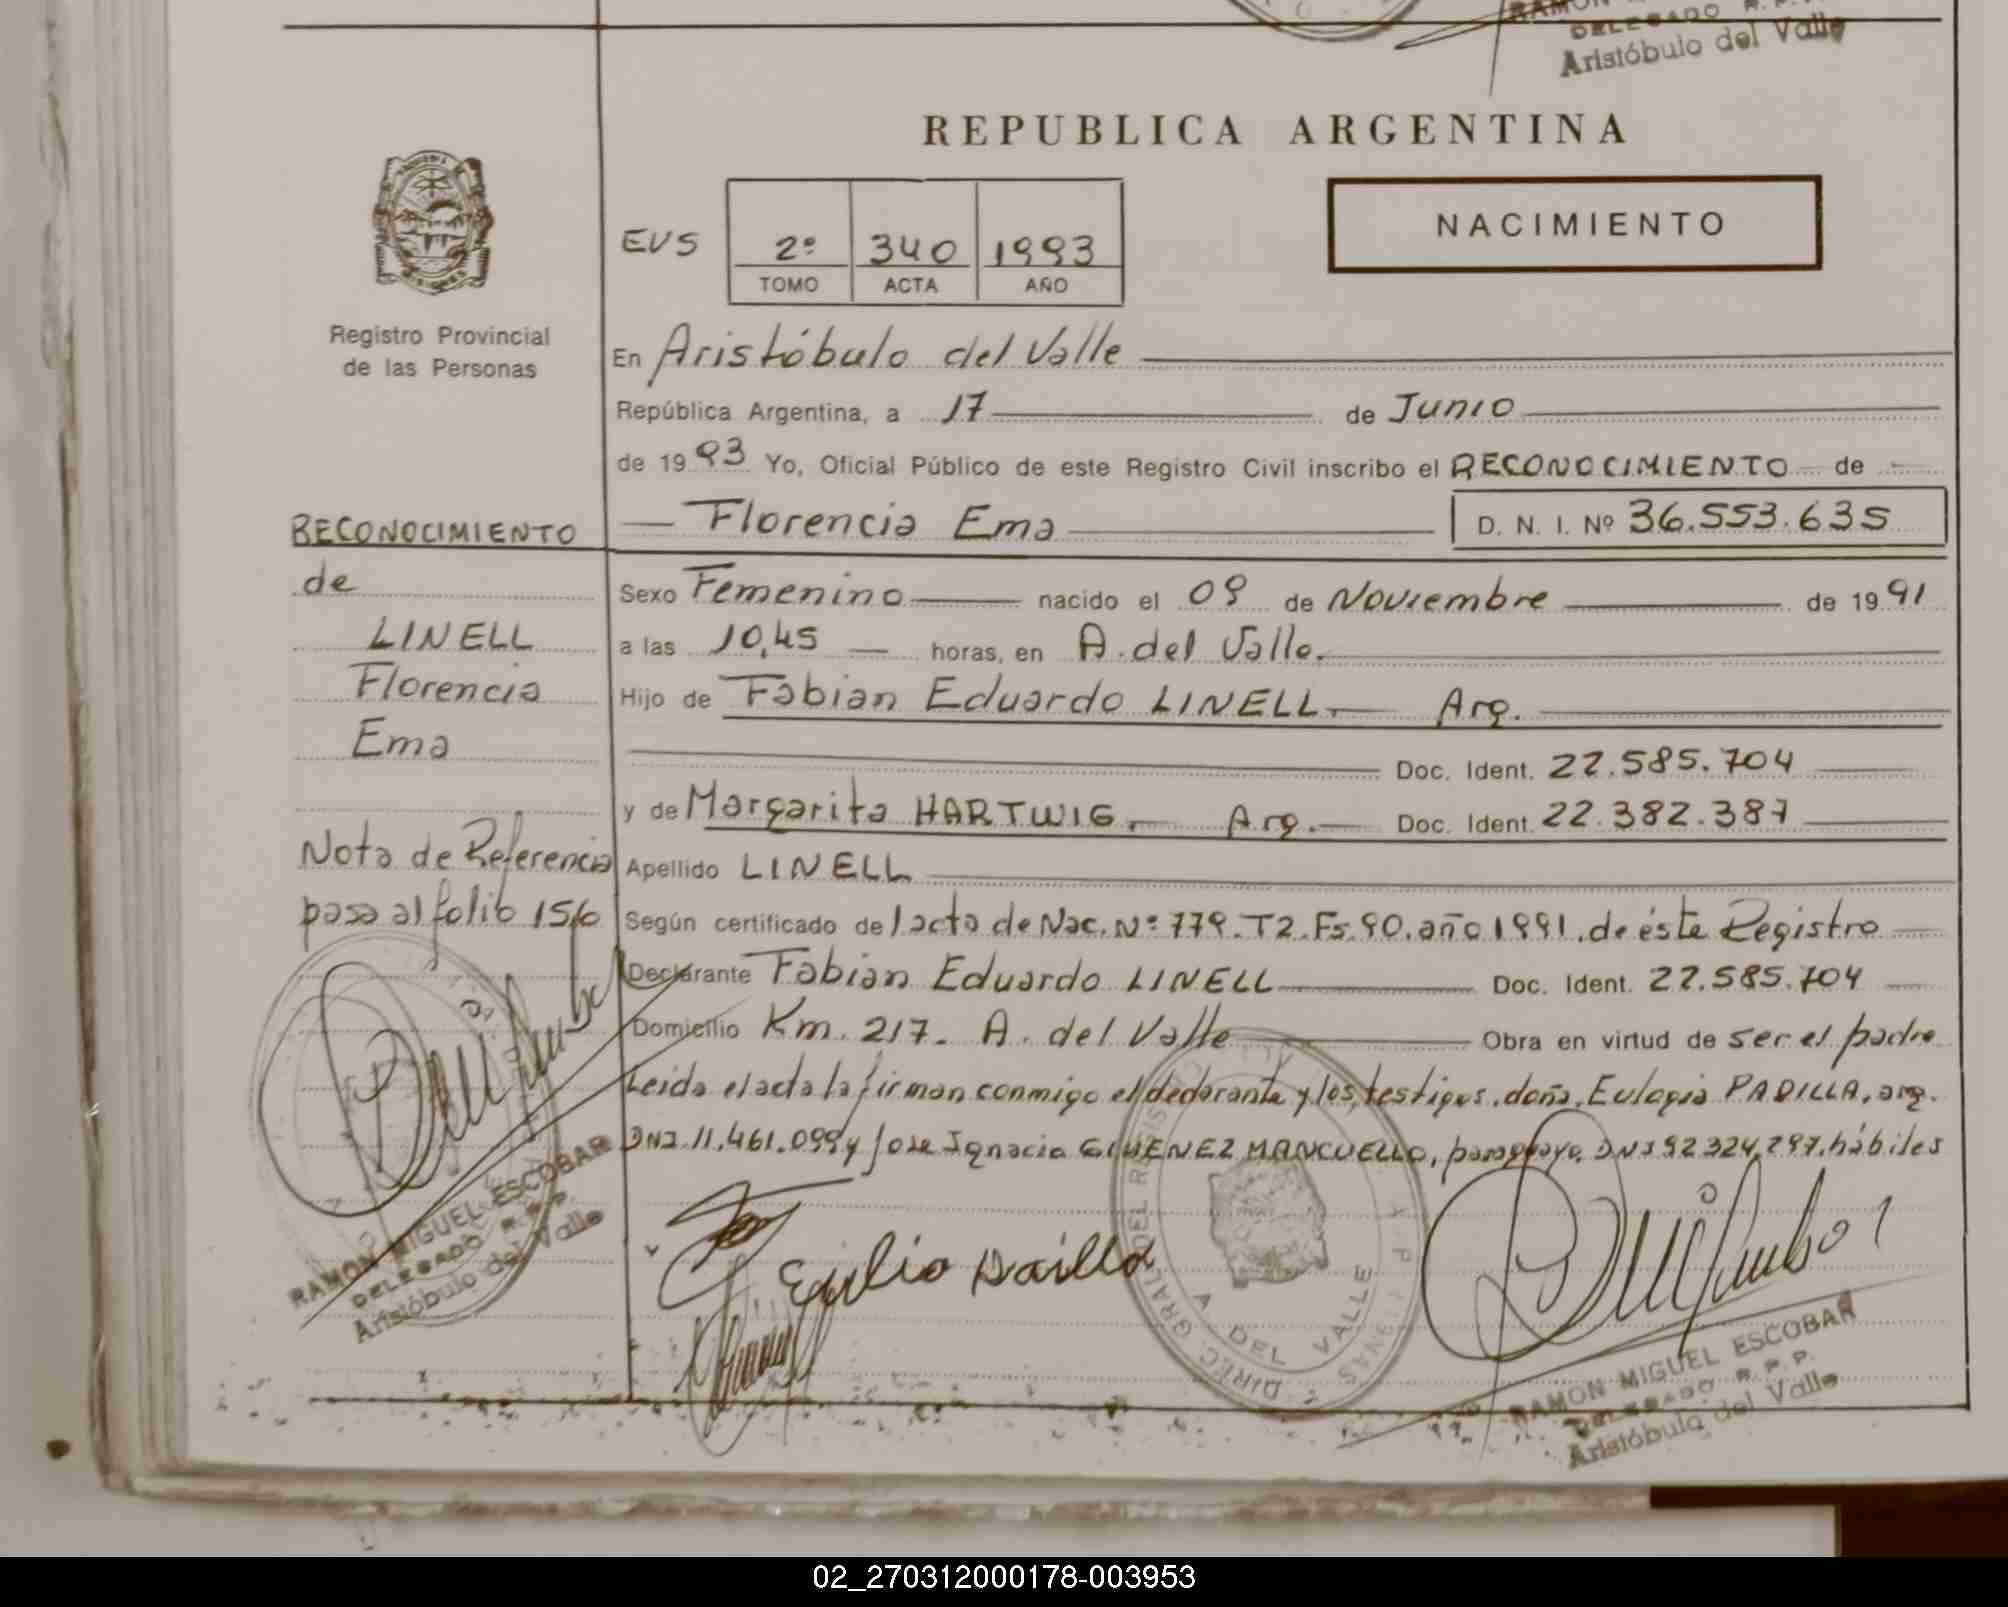 DELEGADO R.P.P.
Aristóbulo del Valle
REPUBLICA ARGENTINA
NACIMIENTO
EVS
2º 340 1993
TOMO ACTA AÑO
Registro Provincial
de las Personas
En Aristóbulo del Valle
República Argentina, a 17 de Junio
de 1993 Yo, Oficial Público de este Registro Civil inscribo el RECONOCIMIENTO de
Florencia Ema D. N. I. Nº 36.553.635
RECONOCIMIENTO
de
LINELL
Florencia
Ema
Nota de Referencia
pasa al folio 156
Sexo Femenino nacido el 09 de Noviembre de 1991
a las 10,45 horas, en A. del Valle.
Hijo de Fabian Eduardo LINELL. Arg.
Doc. Ident. 22.585.704
y de Margarita HARTWIG. Arg. Doc. Ident. 22.382.387
Apellido LINELL
Según certificado del acta de Nac. Nº 779. T2. Fs. 90. año 1991. de éste Registro
Declarante Fabian Eduardo LINELL Doc. Ident. 22.585.704
Domicilio Km. 217. A. del Valle Obra en virtud de ser el padre
Leida el acta la firman conmigo el declarante y los testigos. doña, Eulogia PADILLA, arg.
DNI 11.461.099 y Jose Ignacio GIMENEZ MANCUELLO, paraguayo. DNI 92.324.297. hábiles
RAMON MIGUEL ESCOBAR
DELEGADO R.P.P.
Aristóbulo del Valle
A. DEL VALLE
RAMON MIGUEL ESCOBAR
DELEGADO R.P.P.
Aristóbulo del Valle
02_270312000178-003953